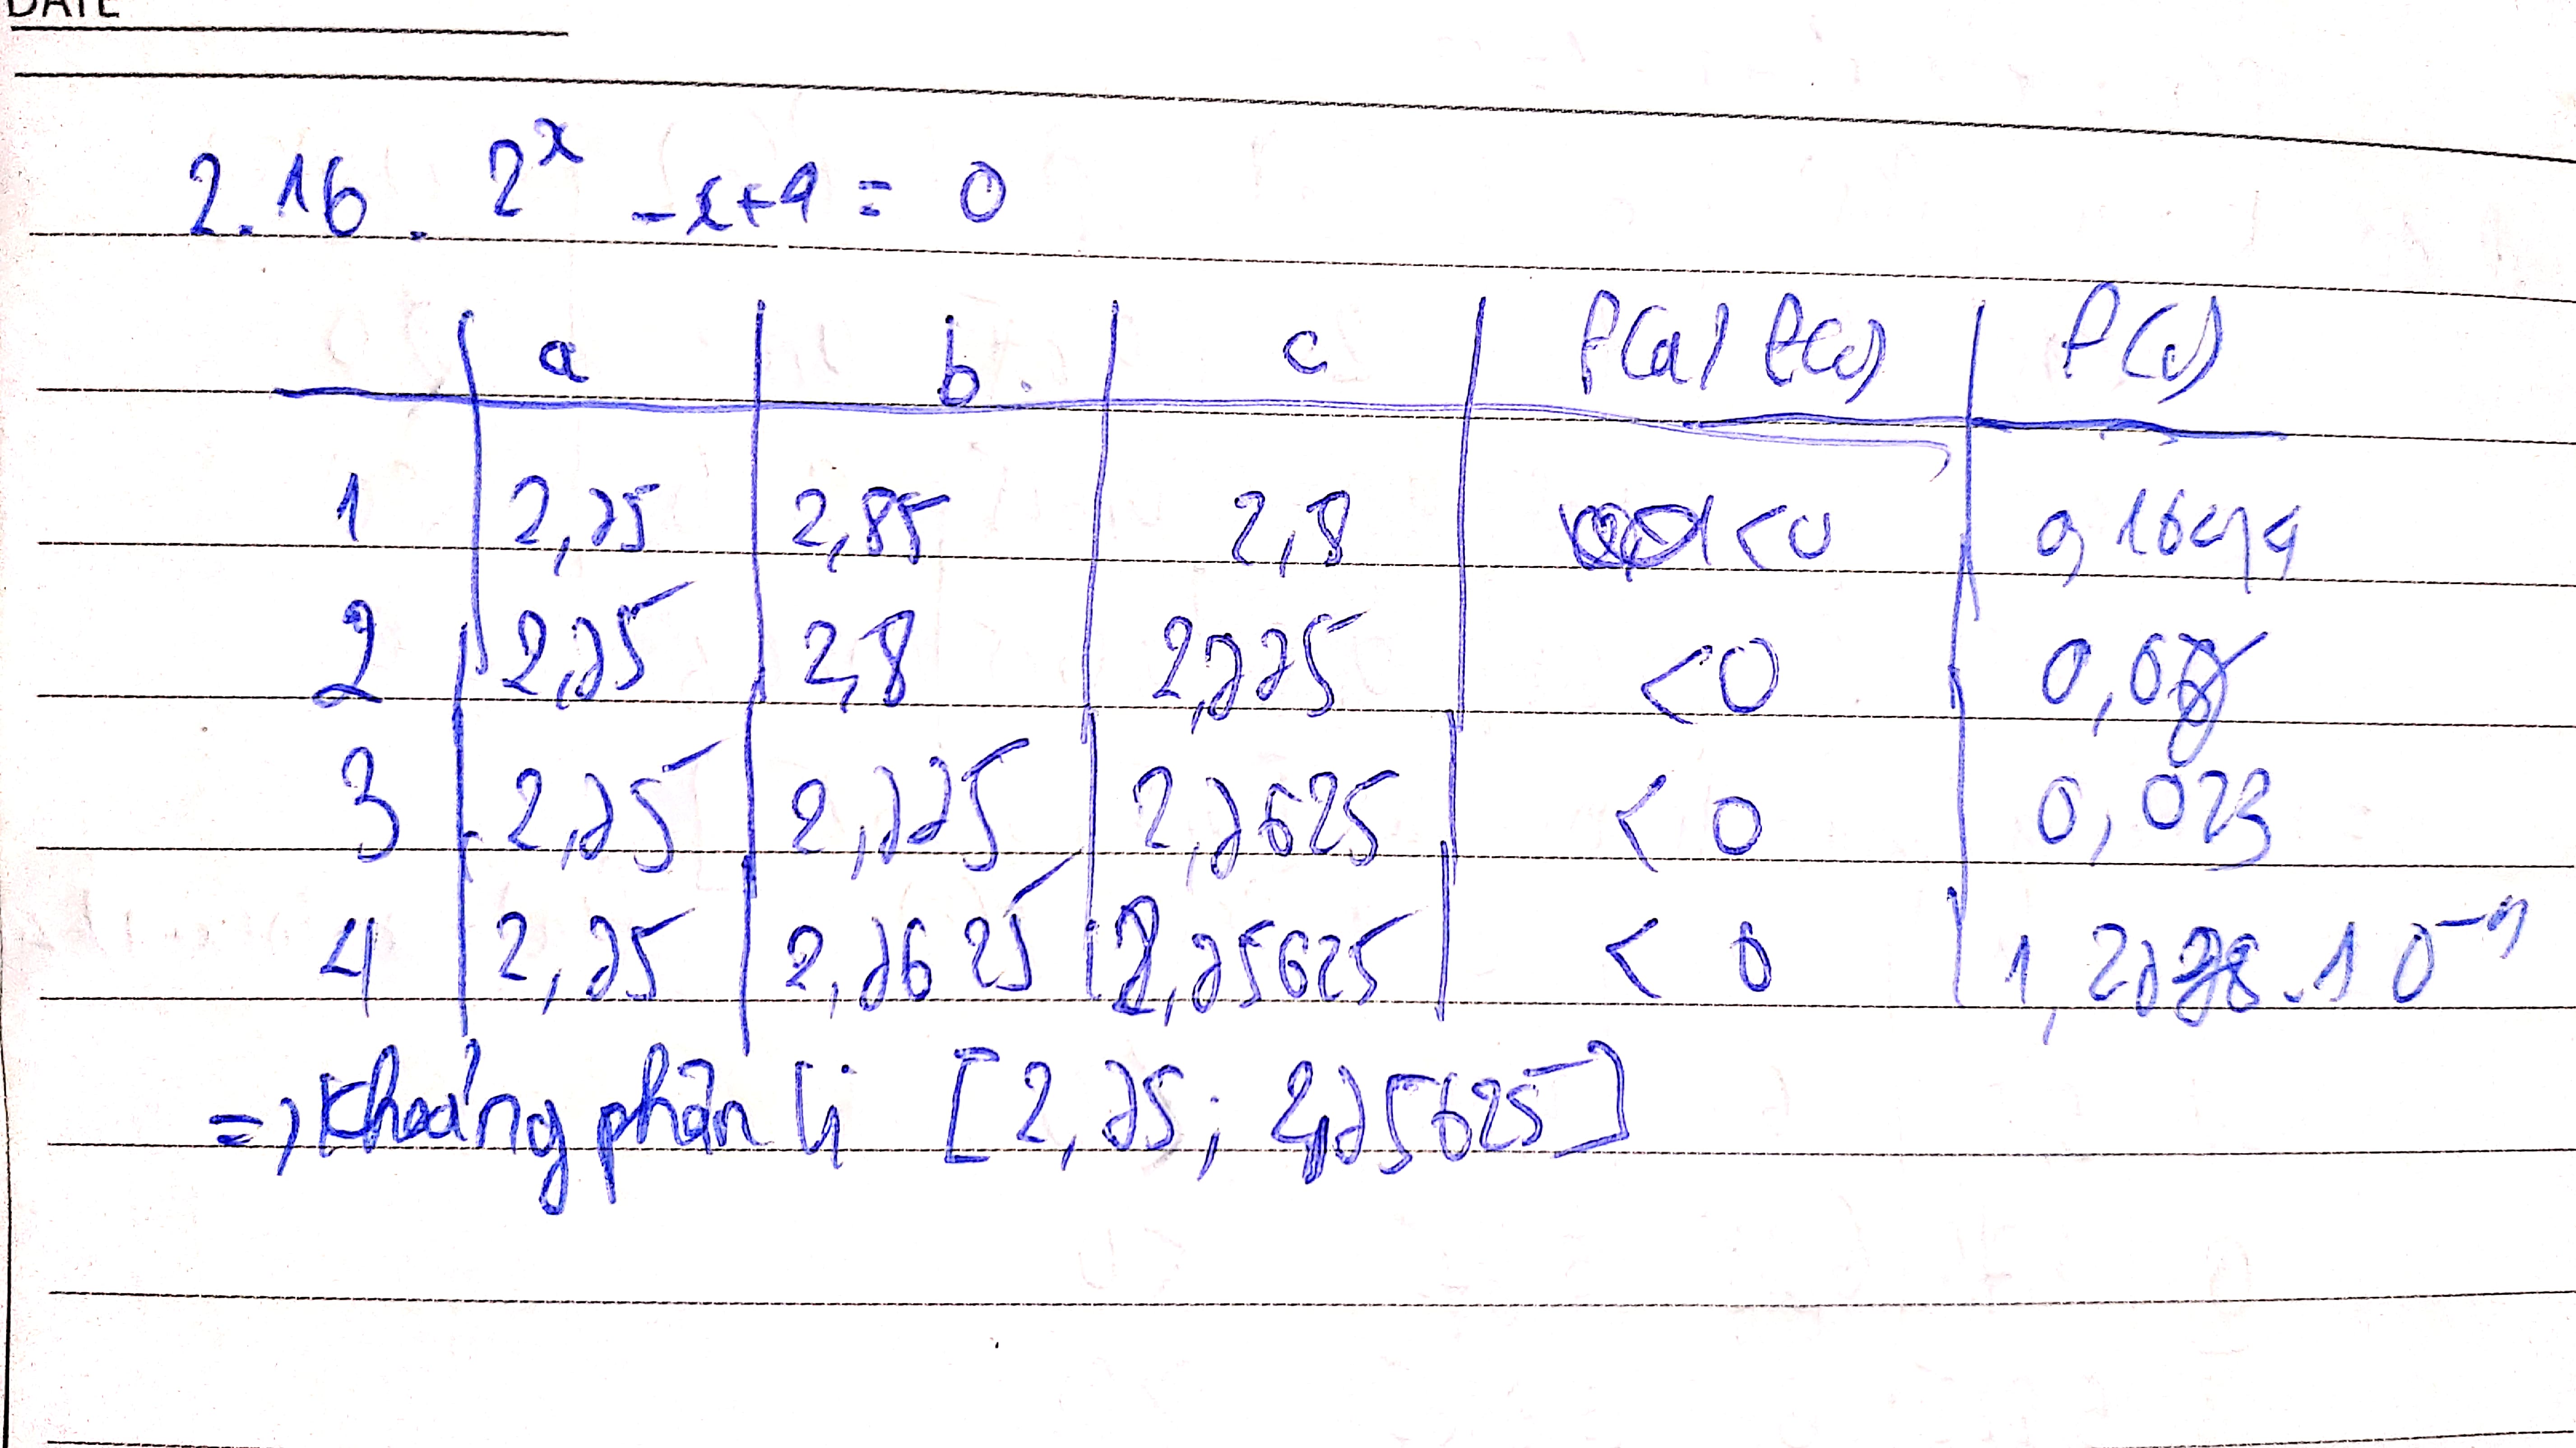 DATE
2.16. 2^x - x+4 = 0
a b c f(a) f(c) f(c)
1 2,75 2,85 2,8 <0 0,1644
2 2,75 2,8 2,775 <0
3 2,75 2,775 2,7625 <0 0,023
4 2,75 2,7625 2,75625 <0
=> Khoảng phân li [2,75; 2,75625]